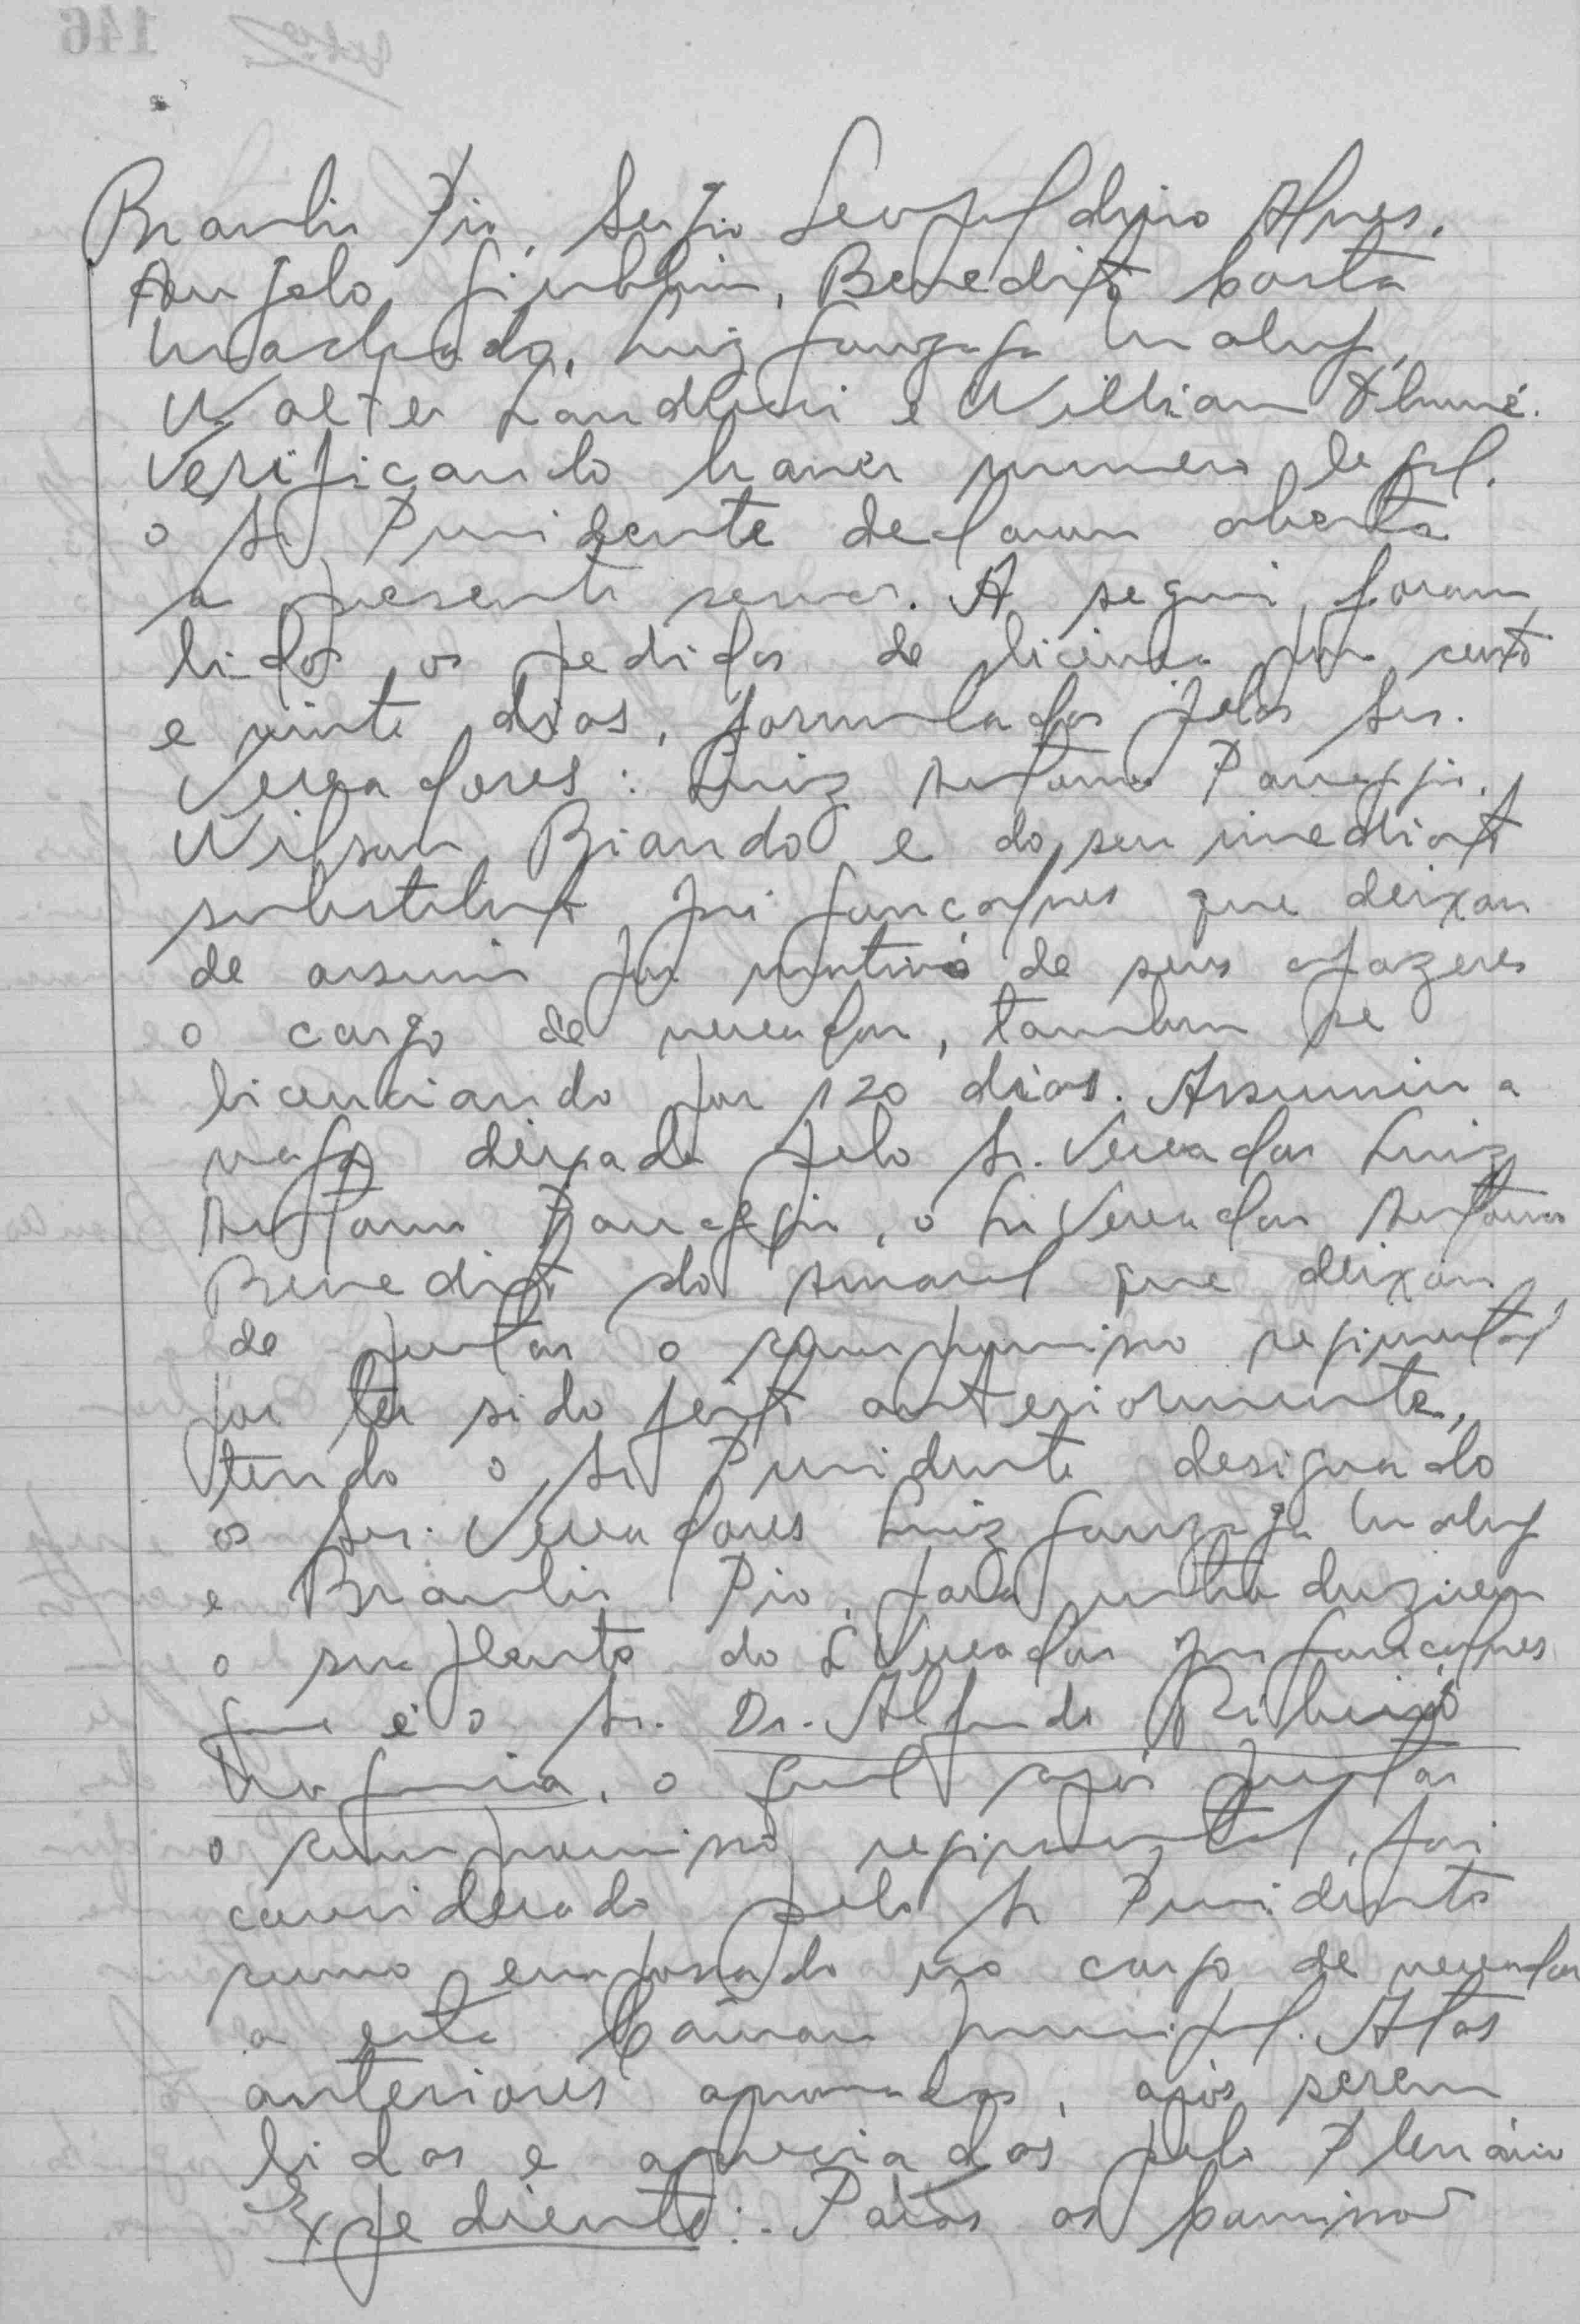 Braulio Pio, Sergio Leopoldino Alves,
Angelo Giubbini, Benedito Costa
Machado, Luiz Gonzaga Maluf,
Walter Landucci e Willian Thumé.
Verificando haver numero legal,
o Sr Presidente declarou aberta
a presente sessão. A seguir, foram
lidos os pedidos de licença por cento
e vinte dias, formulados pelos Srs.
Vereadores: Luiz Antonio Paneggis,
Wilson Biando e do seu imediato
substituto, Joi Goncalves que deixou
de assumir por motivos de seus afazeres
o cargo de vereador, tambem se
licenciando por 120 dias. Assumiu a
vaga deixada pelo Sr. Vereador Luiz
Antonio, o Sr Vereador Antonio
Benedito do Amaral que deixou
de prestar o compromisso regimental
por ter sido feito anteriormente,
tendo o Sr Presidente designado
os Srs. Vereadores Luiz Gonzaga Maluf
e Braulio Pio, para introduzirem
o suplente do Vereador Goncalves
que é o Sr. Dr. Alfredo Ribeiro
Nogueira, o qual após prestar
o compromisso regimental, foi
considerado pelo Sr Presidente
como empossado no cargo de vereador
a esta Câmara Municipal. Atas
anteriores aprovadas, após serem
lidas e apreciadas pelo Plenário
Expediente:. Para as Comissões